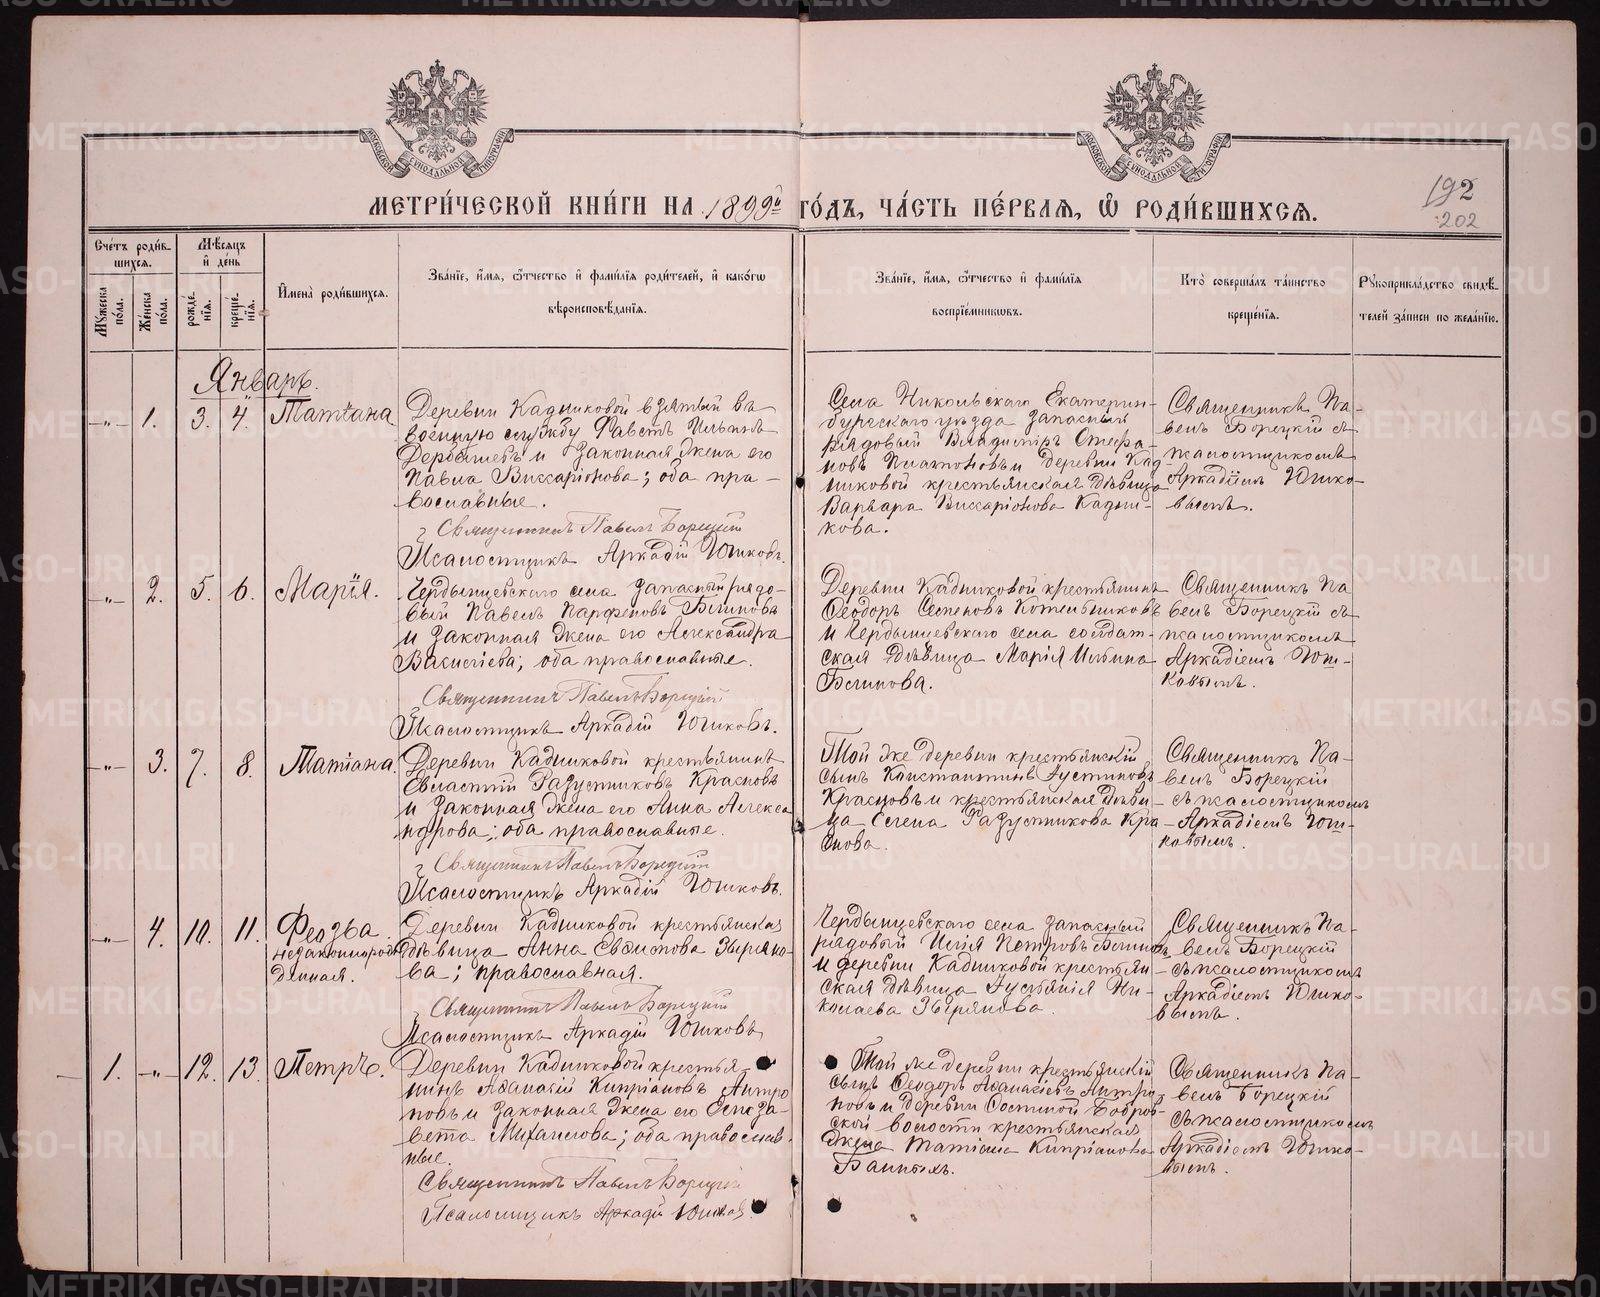 МОСКОВСКОЙ СѴНОДАЛЬНОЙ ТИПОГРАФІИ
МОСКОВСКОЙ СѴНОДАЛЬНОЙ ТИПОГРАФІИ
МЕТРИ́ЧЕСКОЙ КНИ́ГИ НА 1899й ГО́ДЪ, ЧА́СТЬ ПЕ́РВАЯ, Ѡ РОДИ́ВШИХСЯ.
192
202
Сче́тъ роди́в-
шихся.
Мꙋжеска по́ла.
Же́нска по́ла.
Мѣ́сяцъ
и҆ де́нь
рожде́-
нїя.
креще́-
нїя.
И҆мена̀ роди́вшихся.
Зва́нїе, и҆́мя, ѻ҆́тчество и҆ фами́лїя роди́телей, и҆ како́гѡ
вѣроисповѣ́данїя.
Зва́нїе, и҆́мя, ѻ҆́тчество и҆ фами́лїя
воспрїе́мникѡвъ.
Кто̀ соверша́лъ та́инство
креще́нїя.
Рꙋкоприкла́дство свидѣ́-
телей за́писи по жела́нїю.
Январь.
-„- 1. 3. 4. Татіана
Деревни Кадниковой взятый въ
военную службу Фавстъ Ильинъ
Дербышевъ и законная жена его
Павла Виссаріонова; оба пра-
вославные.
Священникъ Павелъ Борецкій
Псаломщикъ Аркадій Юшковъ.
Села Никольскаго Екатерин-
бургскаго уѣзда запасный
рядовый Владиміръ Стефа-
новъ Платоновъ и деревни Кад-
никовой крестьянская дѣвица
Варвара Виссаріонова Кадни-
кова.
Священникъ Па-
велъ Борецкій съ
псаломщикомъ
Аркадіемъ Юшко-
вымъ.
-„- 2. 5. 6. Марія.
Чердынцевскаго села запасный рядо-
вый Павелъ Парфеновъ Блинова
и законная жена его Александра
Василіева; оба православные.
Священникъ Павелъ Борецкій
Псаломщикъ Аркадій Юшковъ.
Деревни Кадниковой крестьянинъ
Ѳеодоръ Семеновъ Котельниковъ
и Чердынцевскаго села солдат-
ская дѣвица Марія Ильина
Блинова.
Священникъ Па
велъ Борецкій съ
псаломщикомъ
Аркадіемъ Юш-
ковымъ.
-„- 3. 7. 8. Татіана.
Деревни Кадниковой крестьянинъ
Евласпій Разумниковъ Красновъ
и законная жена его Анна Алекса
ндрова; оба православные.
Священникъ Павелъ Борецкій
Псаломщикъ Аркадій Юшковъ.
Той же деревни крестьянскій
сынъ Константинъ Іустиновъ
Красновъ и крестьянская дѣви-
ца Елена Разумникова Кра-
снова.
Священникъ Па-
велъ Борецкій
съ псаломщикомъ
Аркадіемъ Юш-
ковымъ.
-„- 4. 10. 11. Феозва
незаконнорож
денная.
Деревни Кадниковой крестьянская
дѣвица Анна Зыряно-
ва; православная.
Священникъ Павелъ Борецкій
Псаломщикъ Аркадій Юшковъ
Чердынцевскаго села запасный
рядовый Илія Петровъ Блиновъ
и деревни Кадниковой крестьян-
ская дѣвица Іустинія Ни-
колаева Зырянова.
Священникъ Па-
велъ Борецкій
съ псаломщикомъ
Аркадіемъ Юшко-
вымъ.
1. -„- 12. 13. Петръ.
Деревни Кадниковой крестья-
нинъ Аѳанасій Кипріановъ Антро
повъ и законная жена его Елиза-
вета Михайлова; оба православ-
ные.
Священникъ Павелъ Борецкій
Псаломщикъ Аркадій Юшковъ
Той же деревни крестьянскій
сынъ Ѳеодоръ Аѳанасіевъ Антро-
повъ и деревни Бобров-
ской волости крестьянская
жена Татіана Кипріанова
Банныхъ.
Священникъ Па-
велъ Борецкій
съ псаломщикомъ
Аркадіемъ Юшко-
вымъ.
METRIKI.GASO-URAL.RU